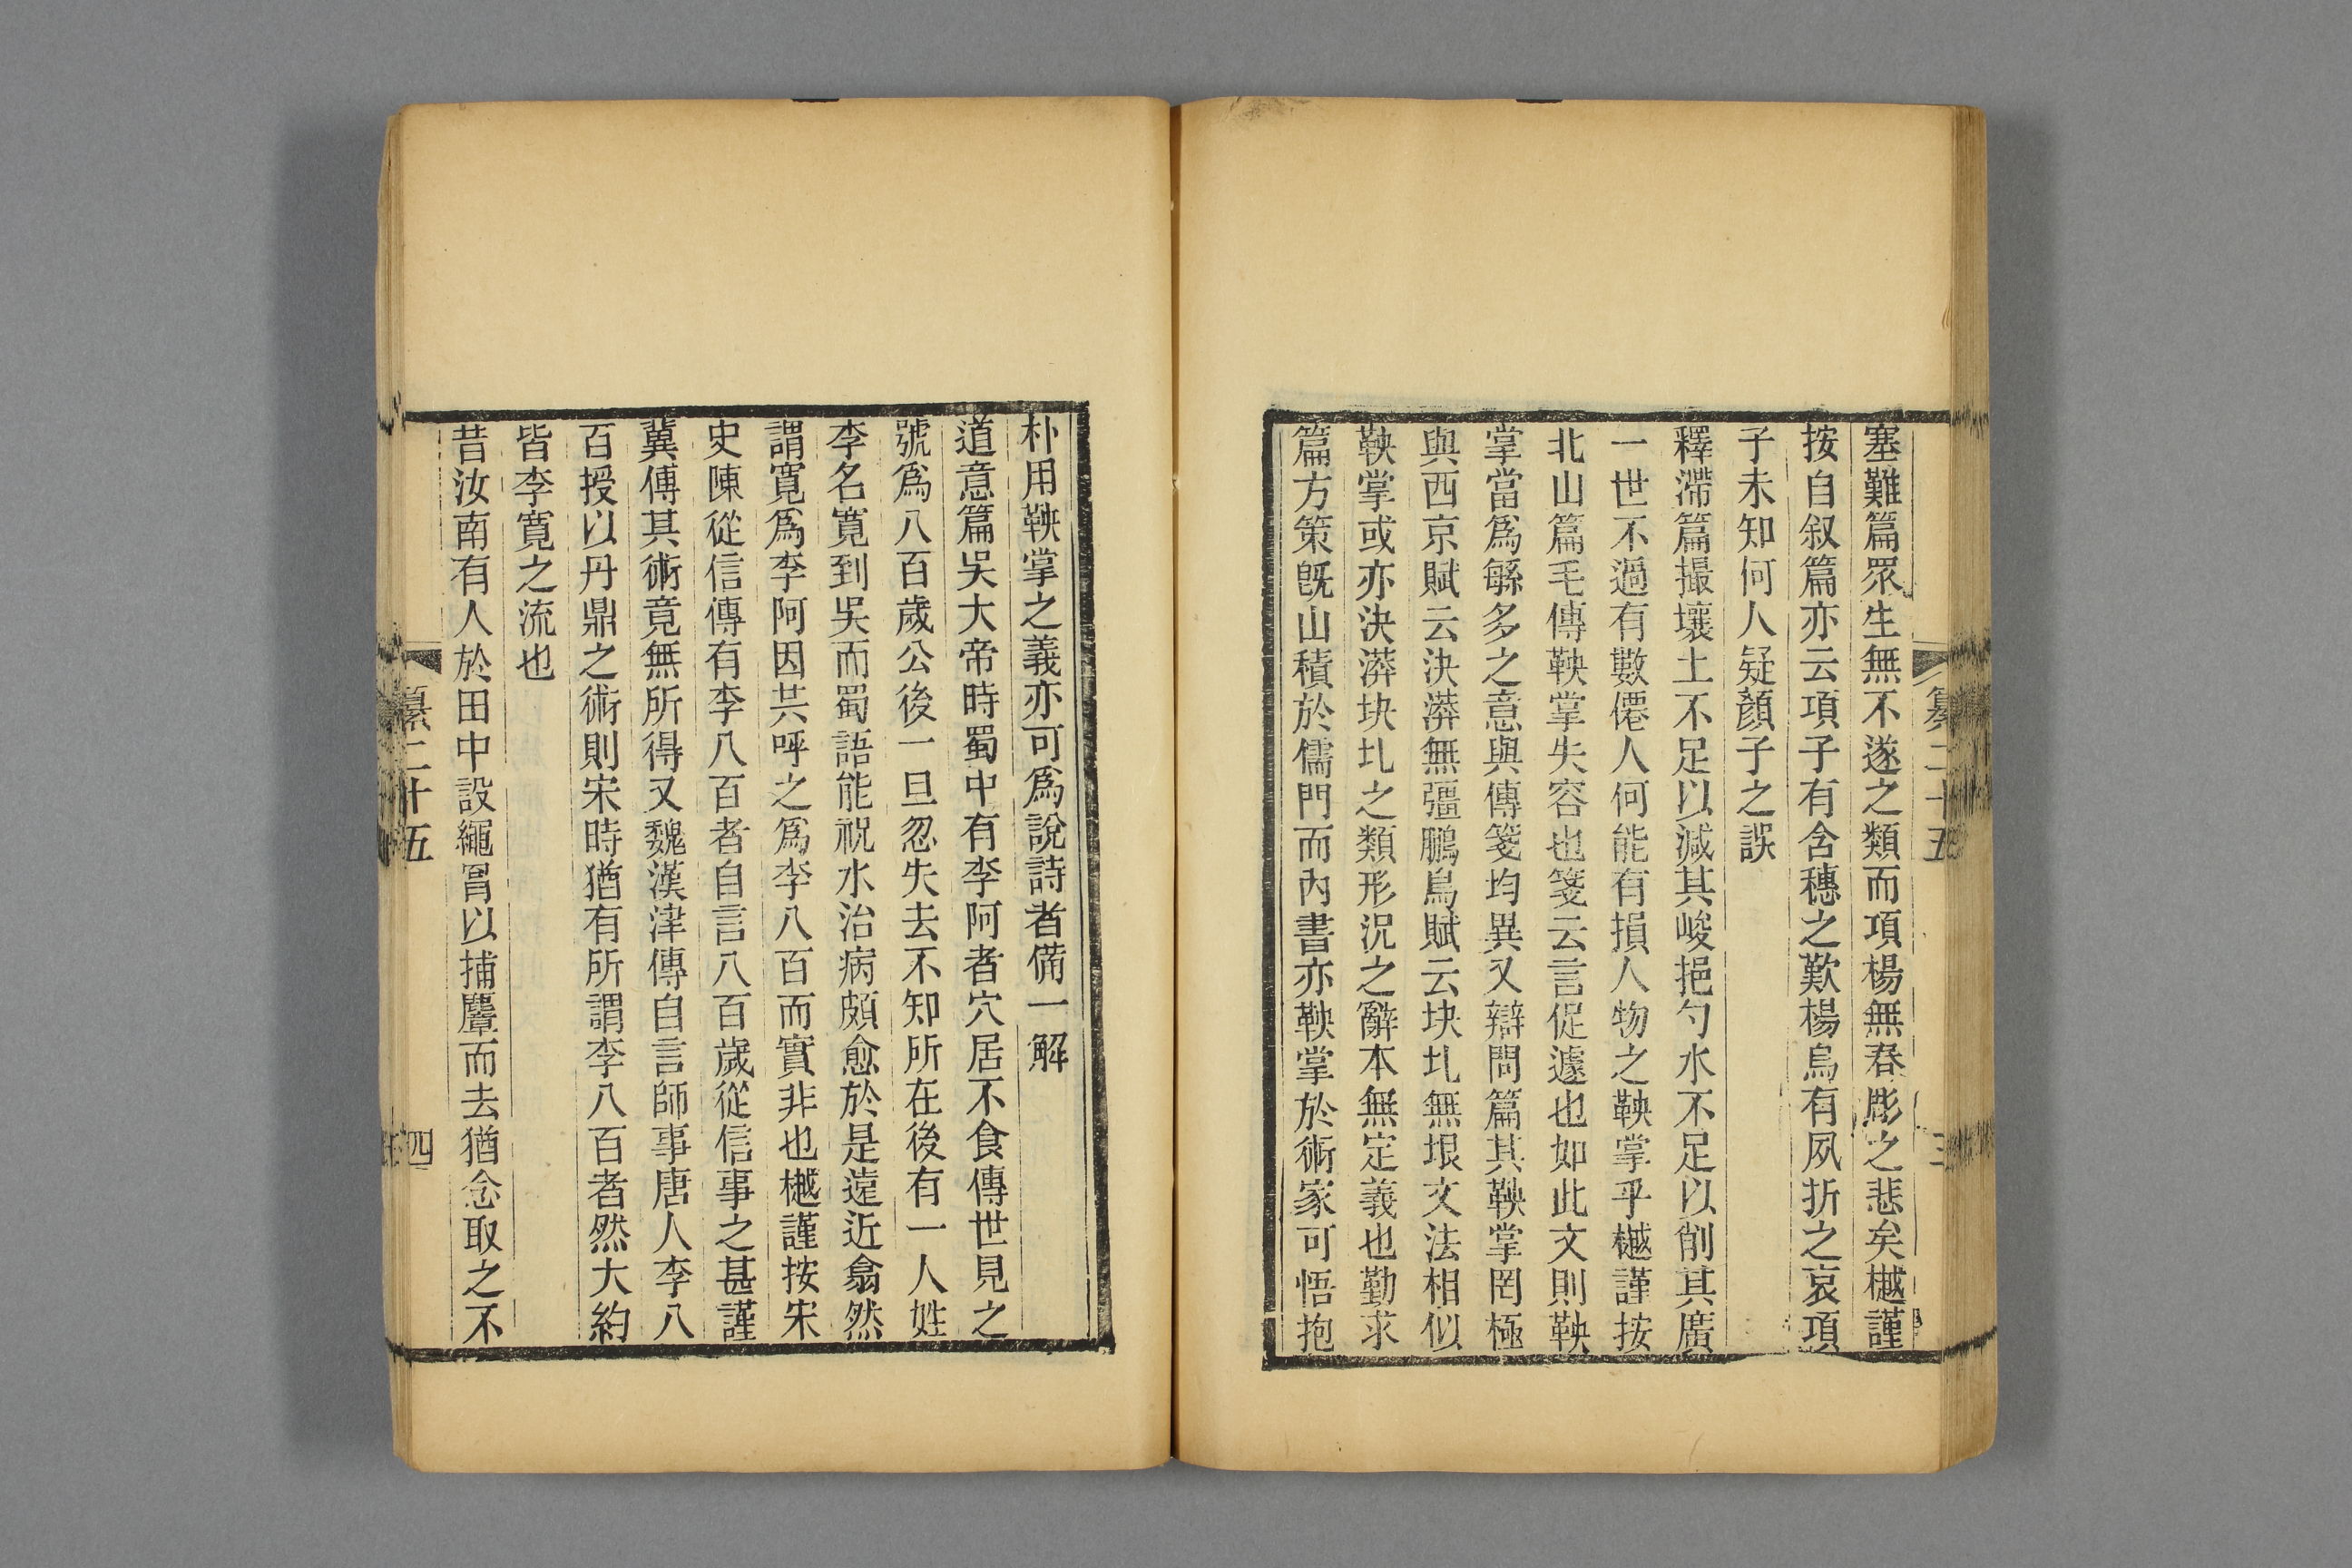 塞難篇眾生無不遂之類而項楊無春彫之悲矣樾謹
按自叙篇亦云項子有含穗之歎楊烏有夙折之哀項
子未知何人疑顏子之誤
釋滯篇撮壤土不足以減其峻挹勺水不足以削其廣
一世不過有數僊人何能有損人物之鞅掌乎樾謹按
北山篇毛傳鞅掌失容也箋云言促遽也如此文則鞅
掌當爲緐多之意與傳箋均異又辯問篇其鞅掌罔極
與西京賦云泱漭無彊鵩鳥賦云坱圠無垠文法相似
鞅掌或亦泱漭坱圠之類形況之辭本無定義也勤求
篇方策旣山積於儒門而內書亦鞅掌於術家可悟抱
纂二十五
三
朴用鞅掌之義亦可爲說詩者備一解
道意篇吳大帝時蜀中有李阿者穴居不食傳世見之
號爲八百歲公後一旦忽失去不知所在後有一人姓
李名寬到吳而蜀語能祝水治病頗愈於是遠近翕然
謂寬爲李阿因共呼之爲李八百而實非也樾謹按宋
史陳從信傳有李八百者自言八百歲從信事之甚謹
冀傳其術竟無所得又魏漢津傳自言師事唐人李八
百授以丹鼎之術則宋時猶有所謂李八百者然大約
皆李寬之流也
昔汝南有人於田中設繩罥以捕麞而去猶念取之不
纂二十五
四